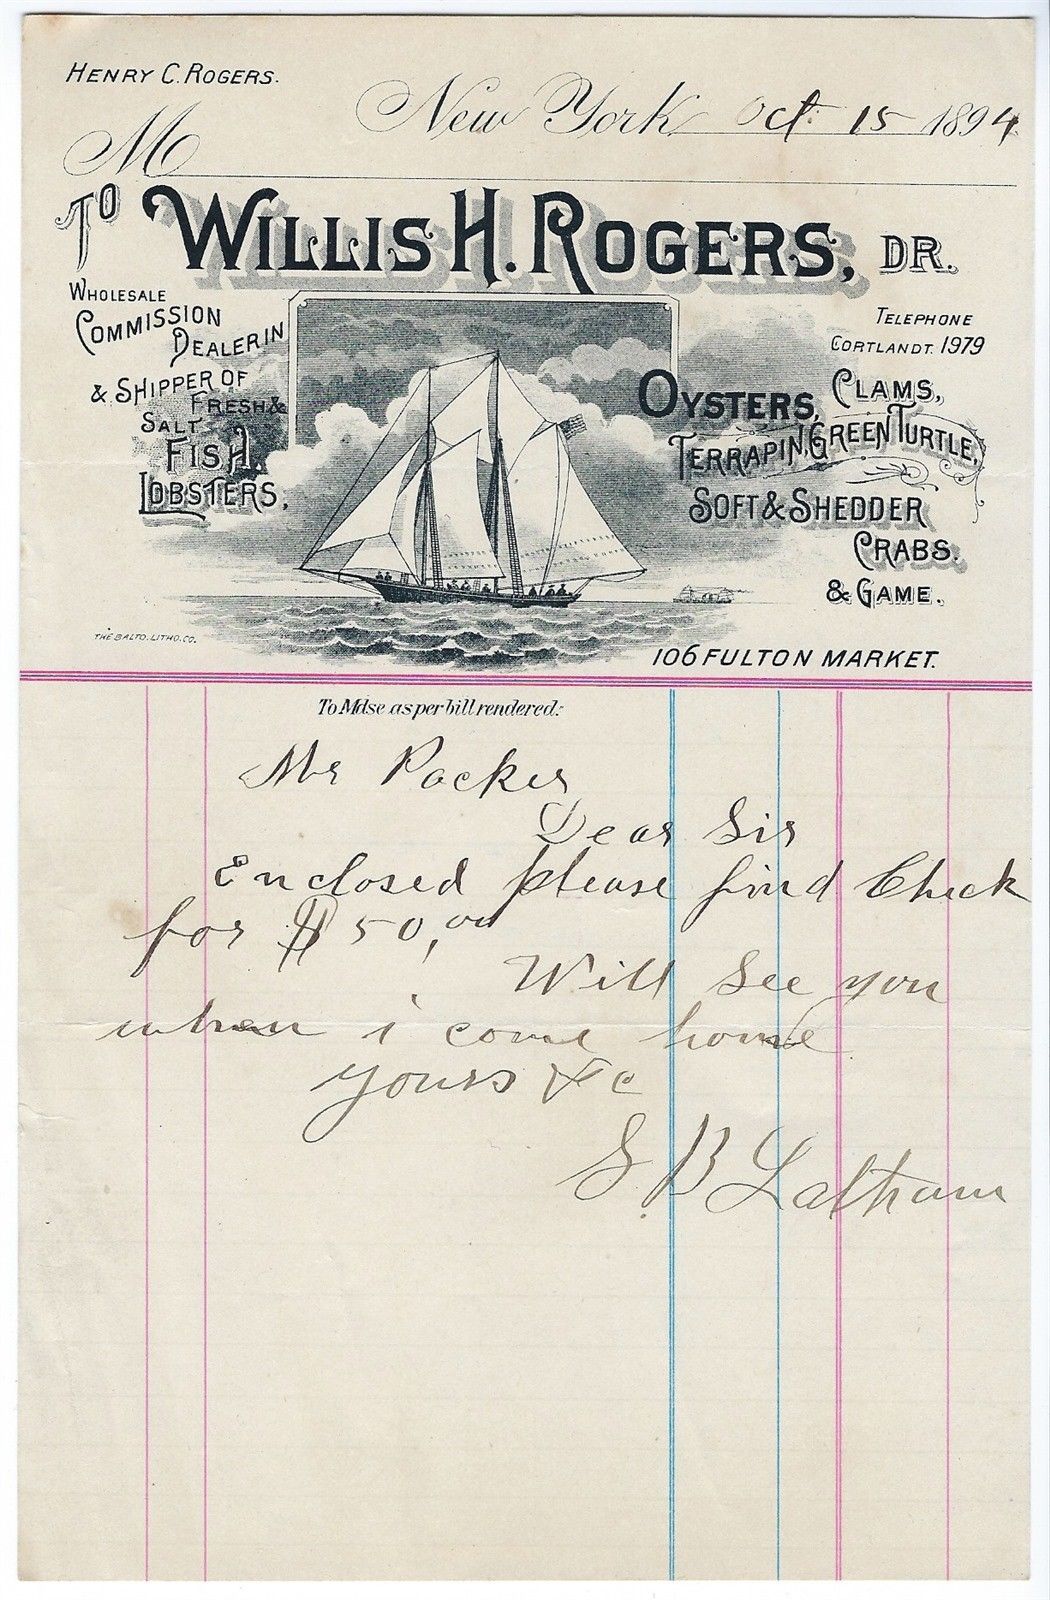 HENRY C. ROGERS.
New York Oct 15 1894
M
TO WILLIS H. ROGERS, DR.
WHOLESALE
COMMISSION
DEALER IN
& SHIPPER OF
FRESH &
SALT
FISH,
LOBSTERS,
TELEPHONE
CORTLANDT. 1979
OYSTERS, CLAMS,
TERRAPIN, GREEN TURTLE,
SOFT & SHEDDER
CRABS.
& GAME.
THE BALTO. LITHO. CO.
106 FULTON MARKET.
To Mdse as per bill rendered:
Mr Packer
Dear Sir
Enclosed please find Check
for $50,00
Will See you
when i come home
yours &c
S. B Latham